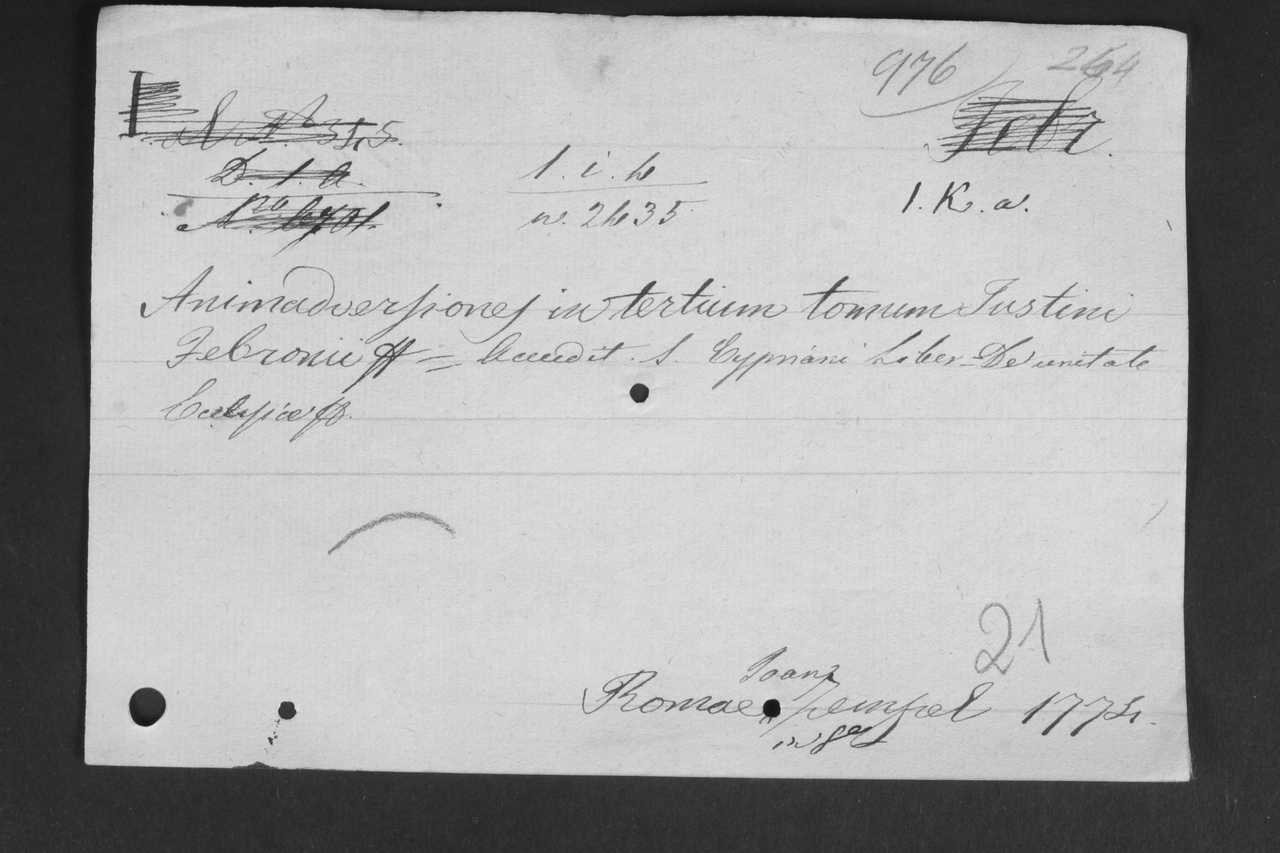 976 264
Febr.
D. 1. a.
1. i. b
n. 2635
1. K. a.
Animadversiones in tertium tomum Justini
Febronii = Accedit S. Cypriani Liber De unitate
Ecclesiae
21
Joan
Romae Zempel 1774.
in 8º